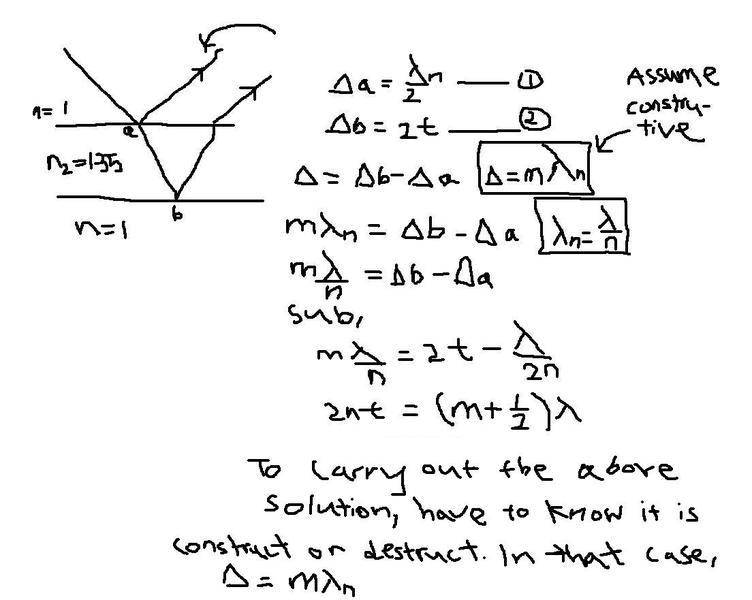 n=1
a
n₂=1.35
b
n=1
Δa = λn/2 —— ①
Δb = 2t —— ②
Assume
constru-
tive
Δ = Δb - Δa   Δ=mλn
mλn = Δb - Δa   λn = λ/n
mλ/n = Δb - Δa
sub,
mλ/n = 2t - λ/2n
2nt = (m+1/2)λ
To carry out the above
solution, have to know it is
construct or destruct. In that case,
Δ = mλn